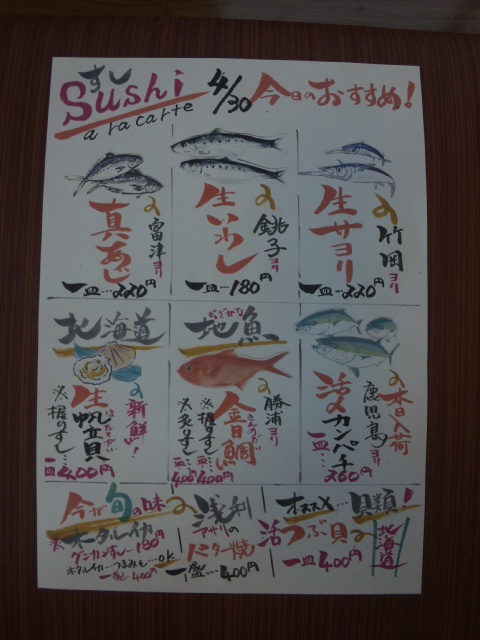 すし
Sushi
a racarte
4/30 今日のおすすめ!
真あじ
富津ヨリ
一皿…220円
生いわし
銚子ヨリ
一皿…180円
生サヨリ
竹岡ヨリ
一皿…220円
北海道
新鮮!
生帆立貝
ほたてがい
※握りずし…
一皿400円
ぢざかな
地魚
勝浦ヨリ
金目鯛
きんめだい
※握りずし…一皿400円
※炙りずし…一皿400円
本日入荷
鹿児島ヨリ
活〆カンパチ
一皿…260円
今が旬の味
※ホタルイカ
グンカンずし…180円
ホタルイカ…つまみも…OK
一盛…400円
浅利
アサリの
バター焼
一盛…400円
オススメ…貝類!
活つぶ貝
北海道
一皿400円